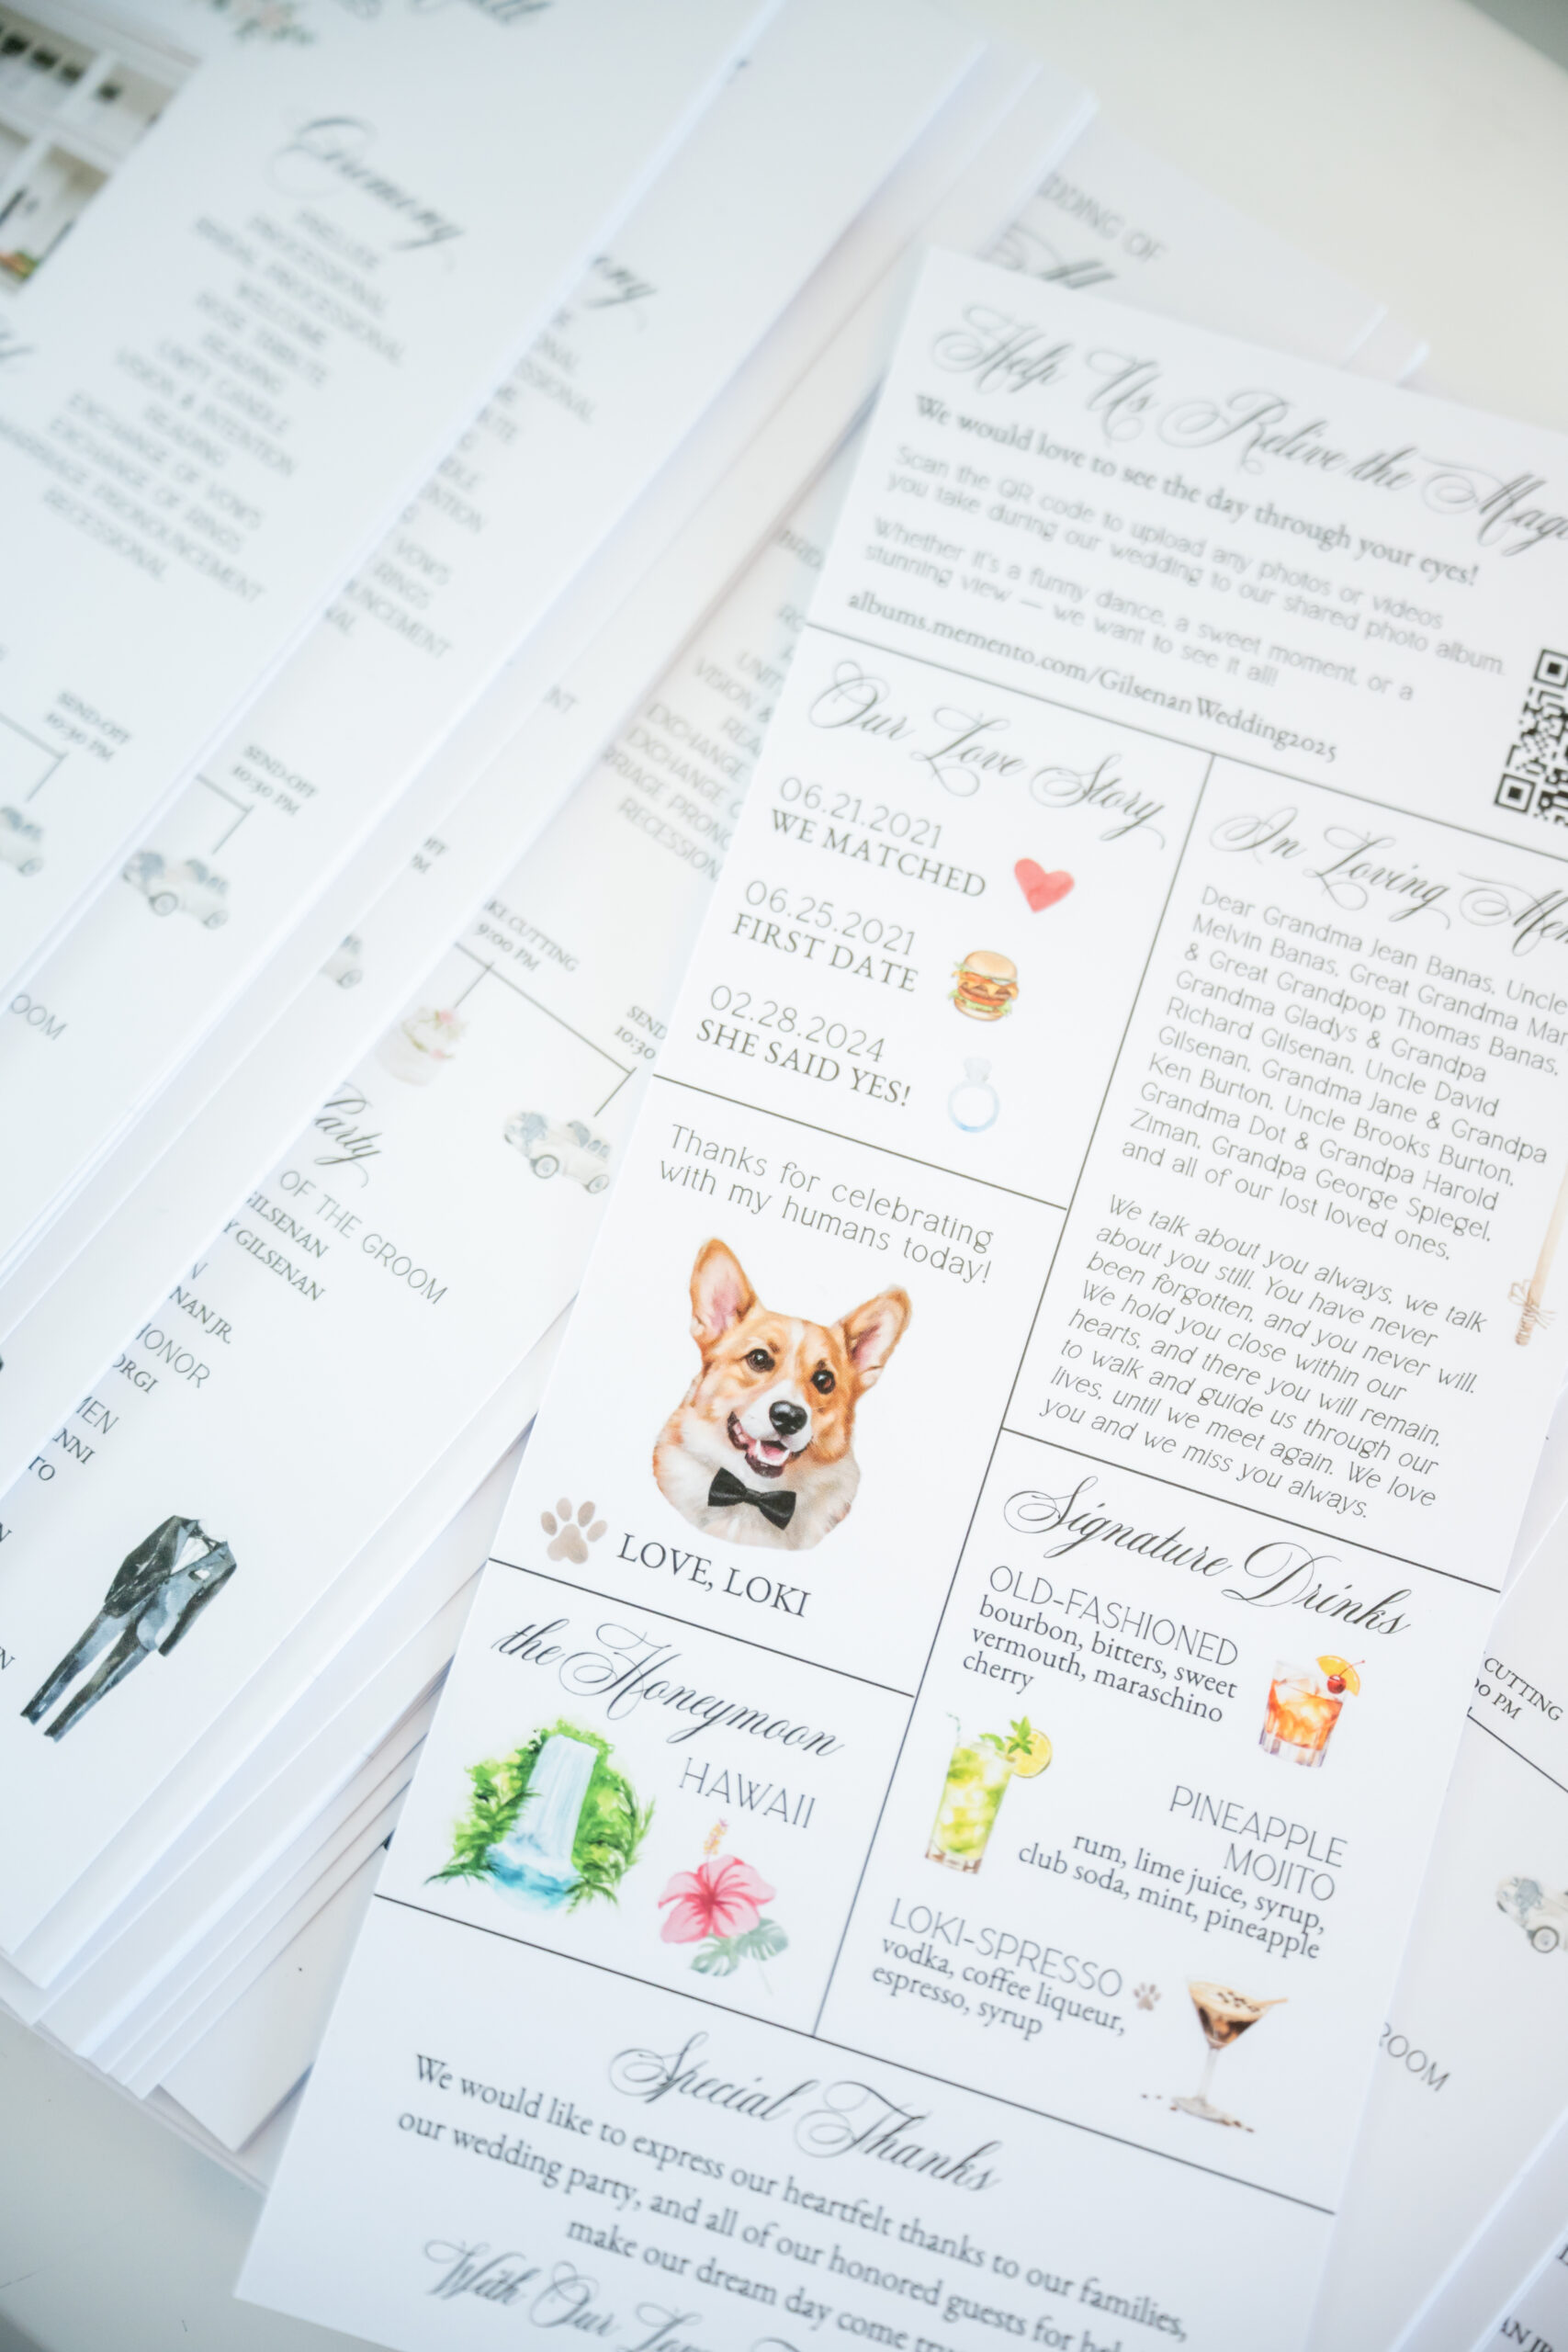 Ceremony
PRELUDE
PROCESSIONAL
BRIDAL PROCESSIONAL
WELCOME
ROSE TRIBUTE
READING
UNITY CANDLE
VISION & INTENTION
READING
EXCHANGE OF VOWS
EXCHANGE OF RINGS
MARRIAGE PRONOUNCEMENT
RECESSIONAL
SEND-OFF
10:30 PM
SEND-OFF
10:30 PM
CUTTING
9:00 PM
SEND
10:30
Party
OF THE GROOM
GILSENAN
GILSENAN
NAN JR.
HONOR
Help Us Relive the
We would love to see the day through your eyes!
Scan the QR code to upload any photos or videos
you take during our wedding to our shared photo album.
Whether it's a funny dance, a sweet moment, or a
stunning view — we want to see it all!
albums.memento.com/GilsenanWedding2025
Our Love Story
06.21.2021
WE MATCHED
06.25.2021
FIRST DATE
02.28.2024
SHE SAID YES!
Thanks for celebrating
with my humans today!
LOVE, LOKI
the Honeymoon
HAWAII
In Loving
Dear Grandma Jean Banas, Uncle
Melvin Banas, Great Grandma
& Great Grandpop Thomas Banas,
Grandma Gladys & Grandpa
Richard Gilsenan, Uncle David
Gilsenan, Grandma Jane & Grandpa
Ken Burton, Uncle Brooks Burton,
Grandma Dot & Grandpa Harold
Ziman, Grandpa George Spiegel,
and all of our lost loved ones,
We talk about you always, we talk
about you still. You have never
been forgotten, and you never will.
We hold you close within our
hearts, and there you will remain,
to walk and guide us through our
lives, until we meet again. We love
you and we miss you always.
Signature Drinks
OLD-FASHIONED
bourbon, bitters, sweet
vermouth, maraschino
cherry
PINEAPPLE
MOJITO
rum, lime juice, syrup,
club soda, mint, pineapple
LOKI-SPRESSO
vodka, coffee liqueur,
espresso, syrup
Special Thanks
We would like to express our heartfelt thanks to our families,
our wedding party, and all of our honored guests for
make our dream day come
With Our
CUTTING